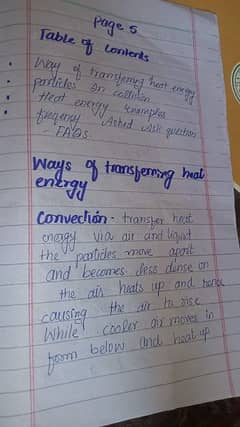 Page 5
Table of Contents
• Way of transferring heat energy
• particles in collision
• Heat energy examples
• freqency Asked ask question
- FAQs
Ways of transferring heat
energy
Convection - transfer heat
energy via air and liquid
the particles move apart
and becomes less dense on
the air heats up and
causing the air to rise
While cooler air moves in
from below and heat up